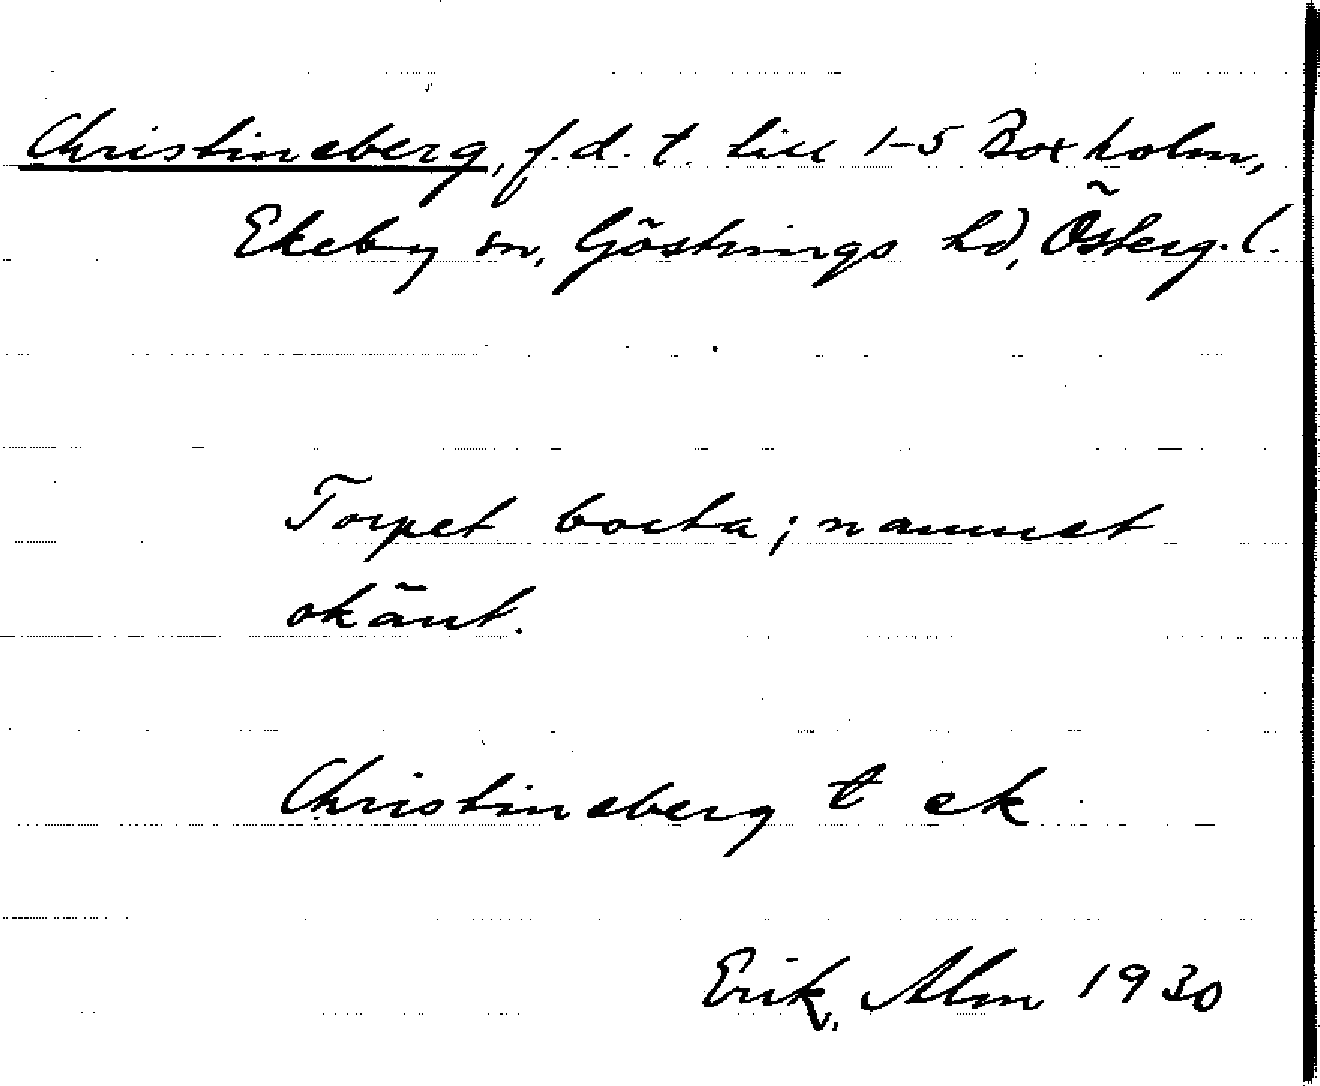 Christineberg, f.d. t. till 1-5 Boxholm,
Ekeby sn, Göstrings hd, Österg. l.
Torpet borta; namnet
okänt.
Christineberg t ek
Erik Alm 1930